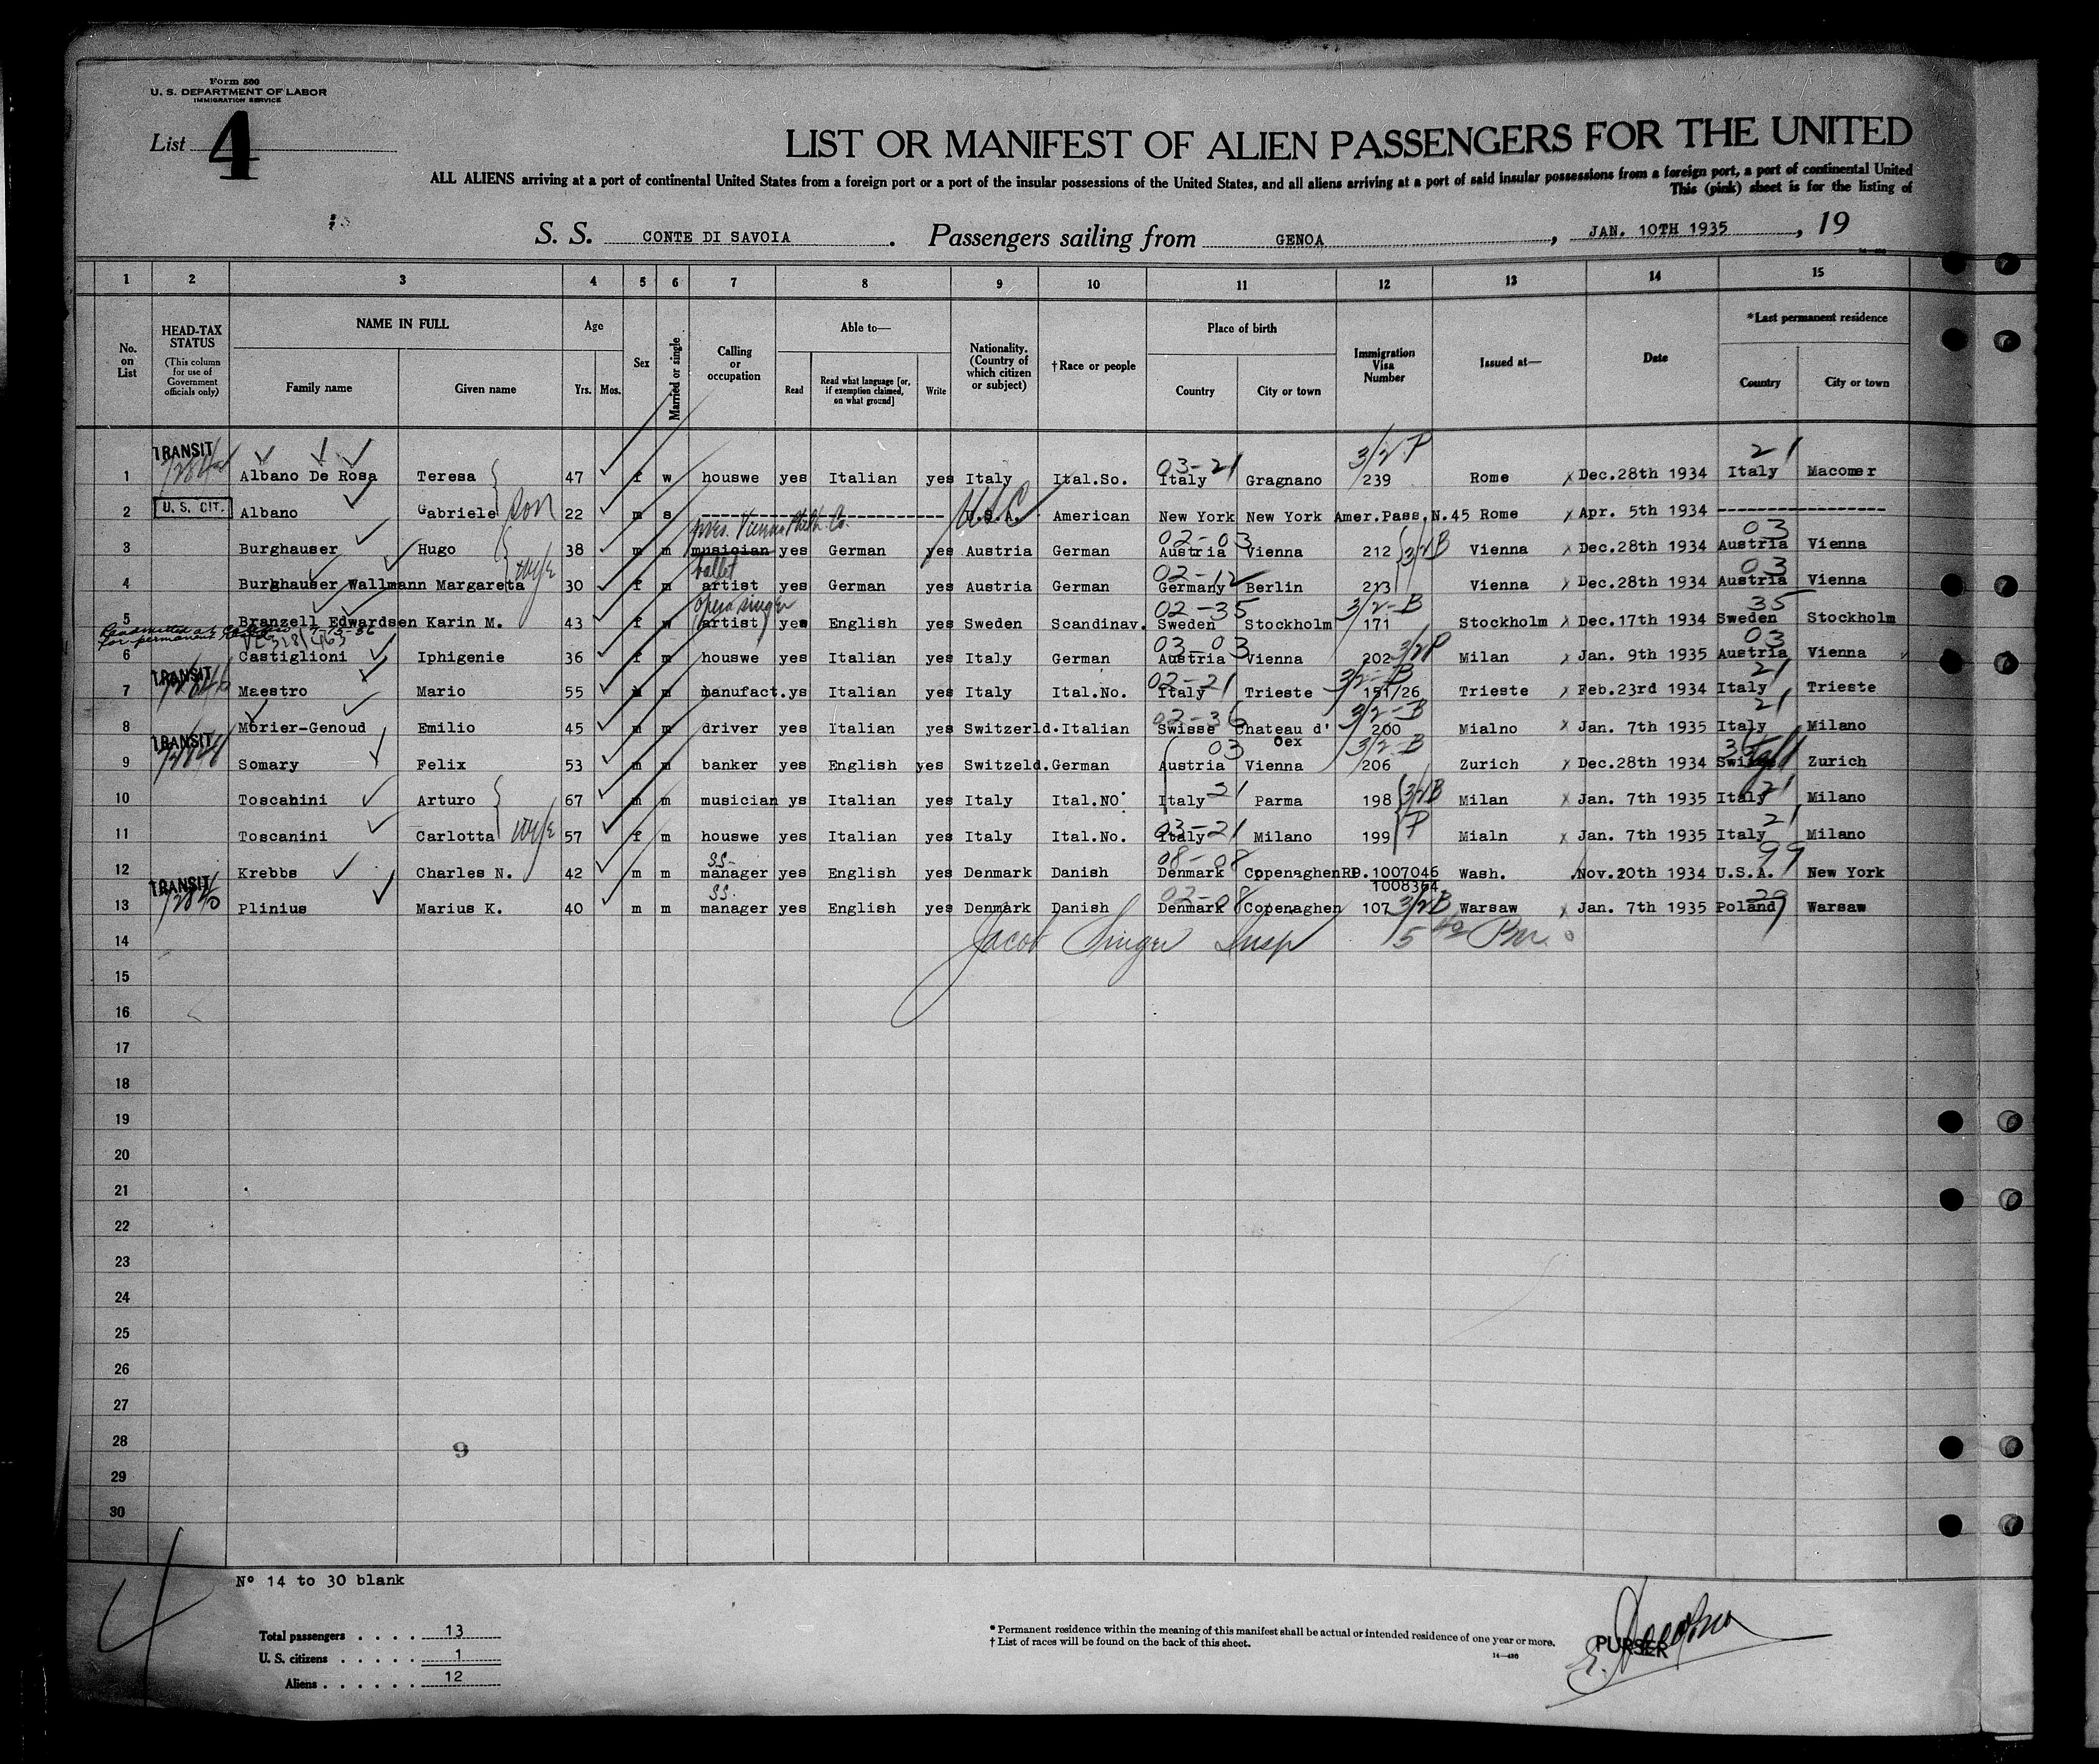 Form 500
U. S. DEPARTMENT OF LABOR
IMMIGRATION SERVICE
List 4
LIST OR MANIFEST OF ALIEN PASSENGERS FOR THE UNITED
ALL ALIENS arriving at a port of continental United States from a foreign port or a port of the insular possessions of the United States, and all aliens arriving at a port of said insular possessions from a foreign port, a port of continental United
This (pink) sheet is for the listing of
S. S. CONTE DI SAVOIA. Passengers sailing from GENOA, JAN. 10TH 1935, 19
1 2 3 4 5 6 7 8 9 10 11 12 13 14 15
No. on List
HEAD-TAX STATUS (This column for use of Government officials only)
NAME IN FULL Family name Given name
Age Yrs. Mos.
Sex
Married or single
Calling or occupation
Able to— Read Read what language [or, if exemption claimed, on what ground] Write
Nationality. (Country of which citizen or subject)
†Race or people
Place of birth Country City or town
Immigration Visa Number
Issued at—
Date
*Last permanent residence Country City or town
TRANSIT 03-21 3/2 P 21
1 Albano De Rosa Teresa 47 f w houswe yes Italian yes Italy Ital.So. Italy Gragnano 239 Rome Dec.28th 1934 Italy Macomer
U. S. CIT. son USC
2 Albano Gabriele 22 m s -------------------- U.S.A. American New York New York Amer.Pass.N.45 Rome Apr. 5th 1934 ---------------
pres. Vienna Philh. Co. 02-03 03
3 Burghauser Hugo 38 m m musician yes German yes Austria German Austria Vienna 212 3/2 B Vienna Dec.28th 1934 Austria Vienna
wife ballet 02-12 03
4 Burghauser Wallmann Margareta 30 f m artist yes German yes Austria German Germany Berlin 213 Vienna Dec.28th 1934 Austria Vienna
opera singer 02-35 3/2-B 35
5 Branzell Edwardsen Karin M. 43 f w artist yes English yes Sweden Scandinav. Sweden Stockholm 171 Stockholm Dec.17th 1934 Sweden Stockholm
for permanent 03-03 03
6 Castiglioni Iphigenie 36 f m houswe yes Italian yes Italy German Austria Vienna 202 3/2 P Milan Jan. 9th 1935 Austria Vienna
TRANSIT 02-21 3/2-B 21
7 Maestro Mario 55 m m manufact.ys Italian yes Italy Ital.No. Italy Trieste 151/26 Trieste Feb.23rd 1934 Italy Trieste
02-36 3/2-B 21
8 Morier-Genoud Emilio 45 m m driver yes Italian yes Switzerld.Italian Swisse Chateau d'oex 200 Mialno Jan. 7th 1935 Italy Milano
TRANSIT 03 3/2-B
9 Somary Felix 53 m m banker yes English yes Switzeld.German Austria Vienna 206 Zurich Dec.28th 1934 Zurich
10 Toscanini Arturo 67 m m musician ys Italian yes Italy Ital.NO. Italy 21 Parma 198 3/2 B Milan Jan. 7th 1935 Italy 21 Milano
wife 03-21 P 21
11 Toscanini Carlotta 57 f m houswe yes Italian yes Italy Ital.No. Italy Milano 199 Mialn Jan. 7th 1935 Italy Milano
SS- 08-08 99
12 Krebbs Charles N. 42 m m manager yes English yes Denmark Danish Denmark CppenaghenRP.1007046 Wash. Nov.20th 1934 U.S.A. New York
1008364
TRANSIT SS. 02-08 29
13 Plinius Marius K. 40 m m manager yes English yes Denmark Danish Denmark Copenaghen 107 3/2 B Warsaw Jan. 7th 1935 Poland Warsaw
14 Jacob Singer Insp
15
16
17
18
19
20
21
22
23
24
25
26
27
28
9
29
30
Nº 14 to 30 blank
4
Total passengers . . . . 13
U. S. citizens . . . . . 1
Aliens . . . . . . 12
* Permanent residence within the meaning of this manifest shall be actual or intended residence of one year or more.
† List of races will be found on the back of this sheet.
PURSER